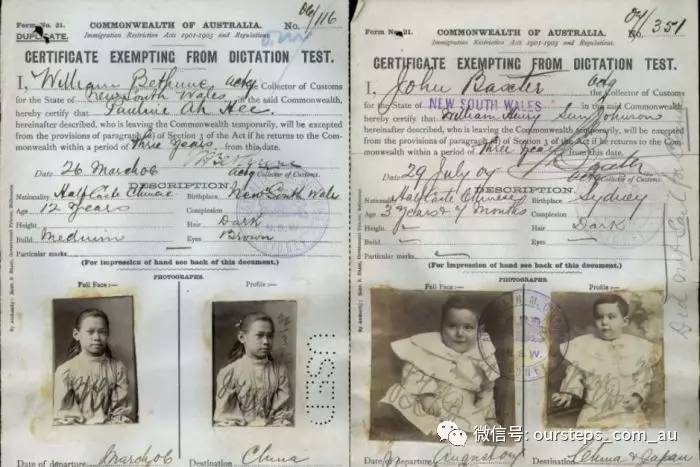 Form No. 21.
COMMONWEALTH OF AUSTRALIA.
No. 06/116
DUPLICATE.
Immigration Restriction Acts 1901-1905 and Regulations.
CERTIFICATE EXEMPTING FROM DICTATION TEST.
I, William Bethune actg the Collector of Customs
for the State of New South Wales in the said Commonwealth,
hereby certify that Pauline Ah Hee
hereinafter described, who is leaving the Commonwealth temporarily, will be excepted
from the provisions of paragraph (a) of Section 3 of the Act if he returns to the Com-
monwealth within a period of Three Years from this date.
Date 26 March 06
actg Collector of Customs.
DESCRIPTION.
Nationality Half Caste Chinese
Birthplace New South Wales
Age 12 Years
Complexion
Height
Hair Dark
Build Medium
Eyes Brown
Particular marks
(For impression of hand see back of this document.)
PHOTOGRAPHS.
Full Face:—
Profile:—
Date of departure March 06
Destination China
Form No. 21.
COMMONWEALTH OF AUSTRALIA.
No. 04/351
Immigration Restriction Acts 1901-1905 and Regulations.
CERTIFICATE EXEMPTING FROM DICTATION TEST.
I, John Baxter actg the Collector of Customs
for the State of NEW SOUTH WALES in the said Commonwealth,
hereby certify that William Henry Sun Johnson
hereinafter described, who is leaving the Commonwealth temporarily, will be excepted
from the provisions of paragraph (a) of Section 3 of the Act if he returns to the Com-
monwealth within a period of Three Years from this date.
J Baxter
Date 29 July 09
actg Collector of Customs.
DESCRIPTION.
Nationality Half Caste Chinese
Birthplace Sydney
Age 3 years & 9 months
Complexion
Height
Hair Dark
Build
Eyes
Particular marks
(For impression of hand see back of this document.)
PHOTOGRAPHS.
Full Face:—
Profile:—
Date of departure August 09
Destination China & Japan
微信号: oursteps_com_au